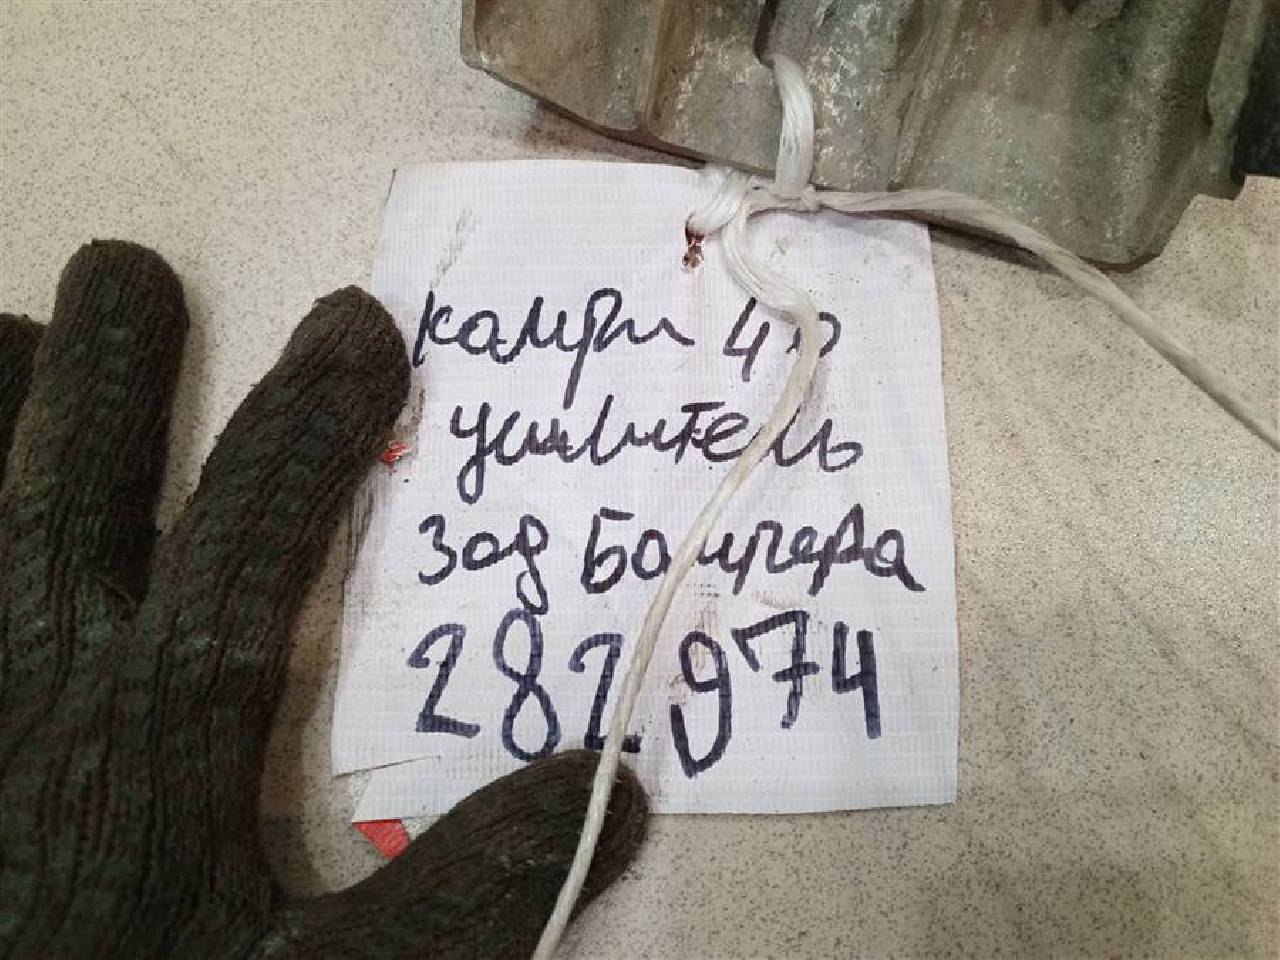 камри 40
усилитель
зад Бампера
282974